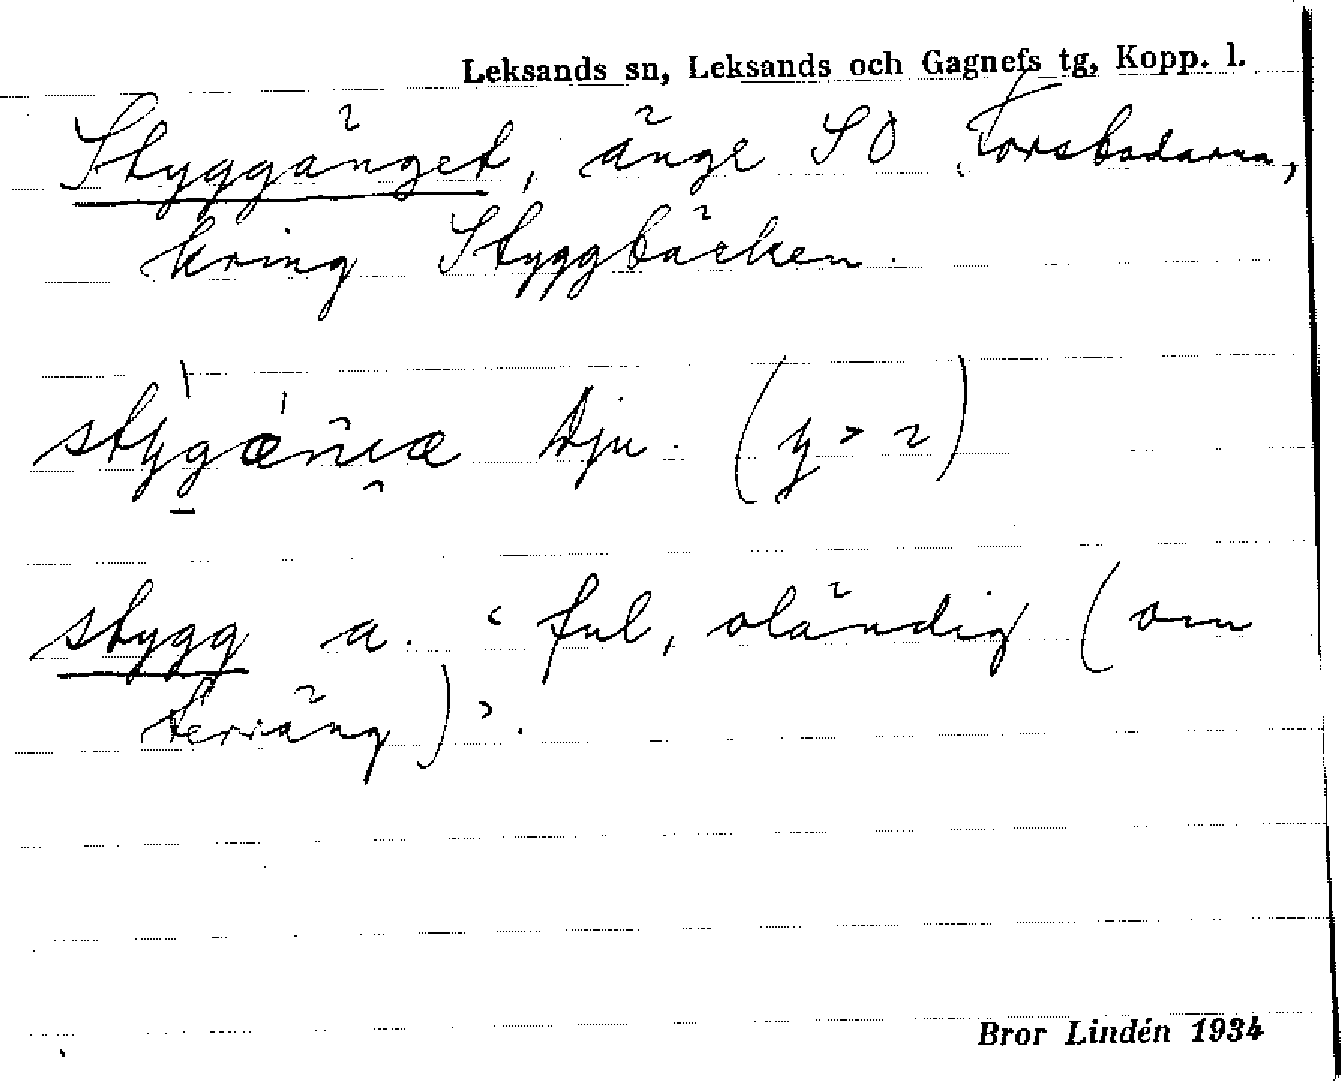 Leksands sn, Leksands och Gagnefs tg, Kopp. l.
Styggänget, änge SO Forsbodarna,
kring Styggbäcken.
Tju. (y >
stygg a. ‘ful, oländig (om
terräng)’.
Bror Lindén 1934